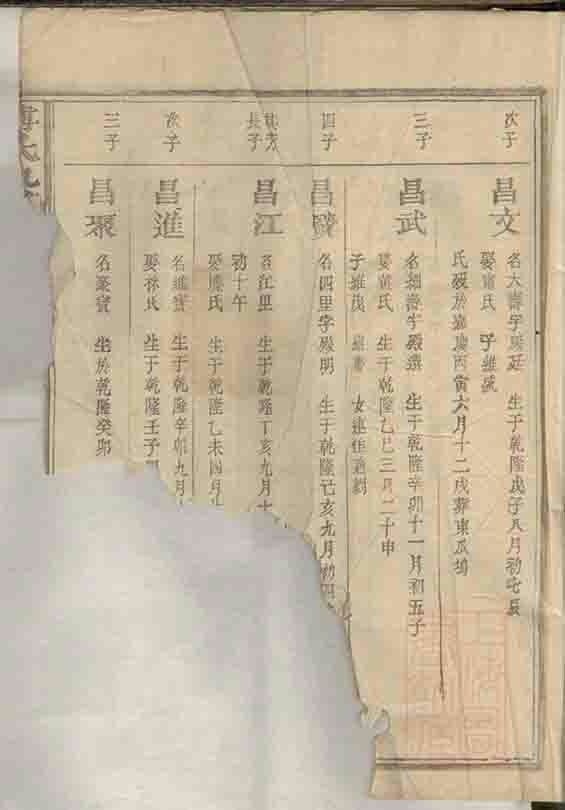 次子
昌文
名大壽字殿廷 生于乾隆戊子八月初七辰
娶甯氏 子維
氏歿於嘉慶丙寅六月十二戌葬東瓜塢
三子
昌武
名細壽字殿選 生于乾隆辛卯十一月初五子
娶黃氏 生于乾隆乙巳三月二十申
子維茂 女連
四子
昌
名四里字殿明 生于乾隆己亥九月初四
長子
昌江
名江里 生于乾隆丁亥九月十
初十午
娶 氏 生于乾隆乙未四月
次子
昌進
名進寶 生于乾隆辛卯九月
娶林氏 生于乾隆壬子
三子
昌聚
名聚寶 生於乾隆癸卯